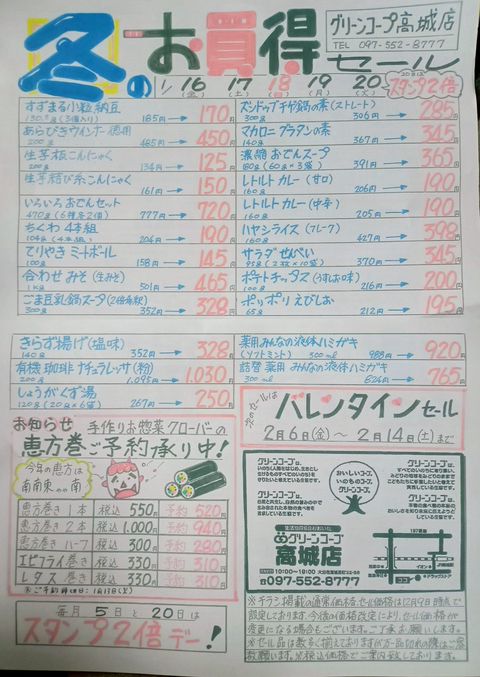 冬のお買得セール
グリーンコープ高城店
TEL 097-552-8777
1/16(金) 17(土) 18(日) 19(月) 20(火)
20日は スタンプ2倍
すずまる小粒納豆 185円→170円
あらびきウインナー徳用 200g 485円→450円
生芋板こんにゃく 200g 134円→125円
生芋結び糸こんにゃく 161円→150円
いろいろおでんセット 470g(6種各2個) 777円→720円
ちくわ 4本組 104g(4本組) 204円→190円
てりやきミートボール 100g 158円→145円
合わせみそ(生みそ) 1kg 501円→465円
ごま豆乳鍋スープ(2倍希釈) 300g 352円→328円
スンドゥブチゲ鍋の素(ストレート) 300g 306円→285円
マカロニグラタンの素 140g 367円→345円
濃縮おでんスープ 180g(60g×3袋) 391円→365円
レトルトカレー(甘口) 160g 206円→190円
レトルトカレー(中辛) 160g 205円→190円
ハヤシライス(フレーク) 160g 427円→398円
サラダせんべい 95g(2枚×10袋) 370円→345円
ポテトチップス(うすしお味) 100g 216円→200円
ポリッポリえびしお 65g 212円→195円
きらず揚げ(塩味) 140g 352円→328円
有機珈琲ナチュレッサ(粉) 200g 1,095円→1,030円
しょうがくず湯 120g(20g×6袋) 267円→250円
薬用みんなの液体ハミガキ(ソフトミント) 300ml 988円→920円
詰替 薬用みんなの液体ハミガキ 250ml 824円→765円
お知らせ
手作りお惣菜クローバーの
恵方巻ご予約承り中!
今年の恵方は
南南東やや南
恵方巻き1本 税込 550円 予約 520
恵方巻き2本 税込 1,000円 予約 940
恵方巻きハーフ 税込 300円 予約 280
エビフライ巻き 税込 330円 予約 310
レタス巻き 税込 330円 予約 310
毎月5日と20日は
スタンプ2倍デー!
次のセールは
バレンタインセール
2月6日(金)〜2月14日(土)まで
グリーンコープは、
グリーンコープは、
グリーンコープは、
グリーンコープは、
おいしいコープ。
いのちのコープ。
グリーンコープ
高城店
10:00〜19:00
☎097-552-8777
197号線
ココ
※チラシ掲載の通常価格、セール価格は12月9日時点で
設定しております。今後の価格改定により、セール価格が
変更になる場合もございます。ご了承お願いします。
※セール品は数多く揃えておりますが万一品切れの際はご容
赦願います。※税込価格でご案内致しております。